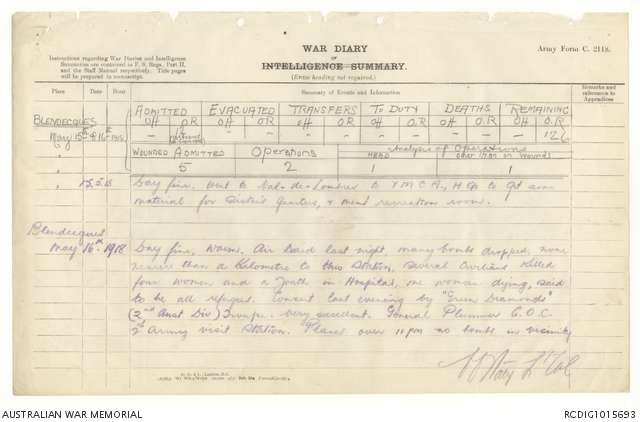 Army Form C. 2118.
WAR DIARY
or
INTELLIGENCE SUMMARY.
(Erase heading not required.)
Instructions regarding War Diaries and Intelligence
Summaries are contained in F. S. Regs., Part II.
and the Staff Manual respectively. Title pages
will be prepared in manuscript.
Place Date Hour Summary of Events and Information Remarks and references to Appendices
ADMITTED EVACUATED TRANSFERS TO DUTY DEATHS REMAINING
OFF O.R OFF O.R OFF O.R OFF O.R OFF O.R OFF O.R
BLENDECQUES
May 15th & 16th 1918 126
WOUNDED ADMITTED Operations Analysis of Operations
HEAD Other than on wounds
5 2 1 1
15.5.18 Day fine. Went to Val-de-Lumbres to Y.M.C.A., H Qs to get some
material for Sisters Quarters, & mens recreation room.
Blendecques
May 16th 1918 Day fine, warm. Air Raid last night, many bombs dropped, none
nearer than a Kilometre to this Station, several Civilians killed
four women and a youth in Hospital, one woman dying, said
to be all refugees. Concert last evening by "Diamonds"
(2nd Aust Div) Troupe. Very excellent. General Plummer G.O.C.
2nd Army visit Station. Planes over 11 pm no bombs in vicinity
Lt Col
AUSTRALIAN WAR MEMORIAL
RCDIG1015693